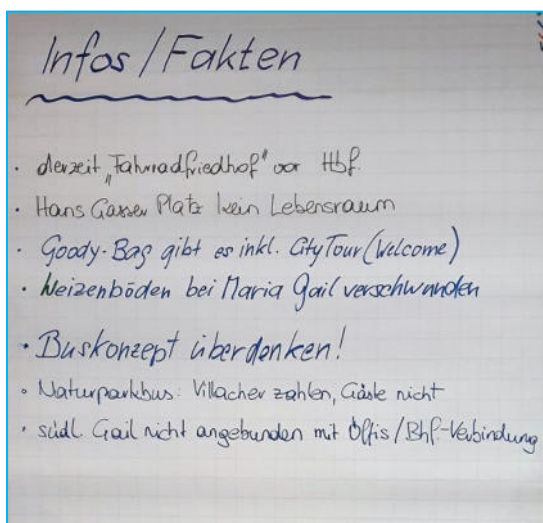 Infos/Fakten
• derzeit „Fahrradfriedhof" vor Hbf.
• Hans Gasser Platz kein Lebensraum
• Goody-Bag gibt es inkl. CityTour (Welcome)
• Weizenböden bei Maria Gail verschwunden
• Buskonzept überdenken!
• Naturparkbus: Villacher zahlen, Gäste nicht
• südl. Gail nicht angebunden mit Öffis/Bhf-Verbindung